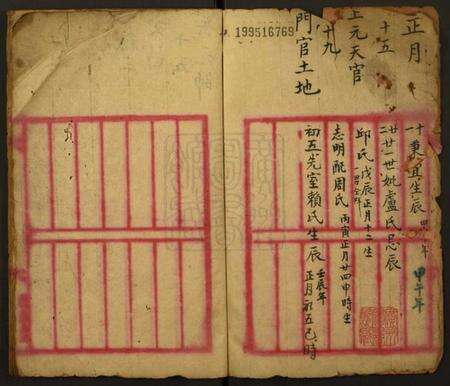 正月
十五
上元天官
十九
門官土地
199516769
十一秉宜生辰
甲午年
廿二廿一世妣盧氏忌辰
邱氏戊辰正月十二生
志明配周氏丙寅正月廿四申時生
初五先室賴氏生辰壬辰年正月初五巳時